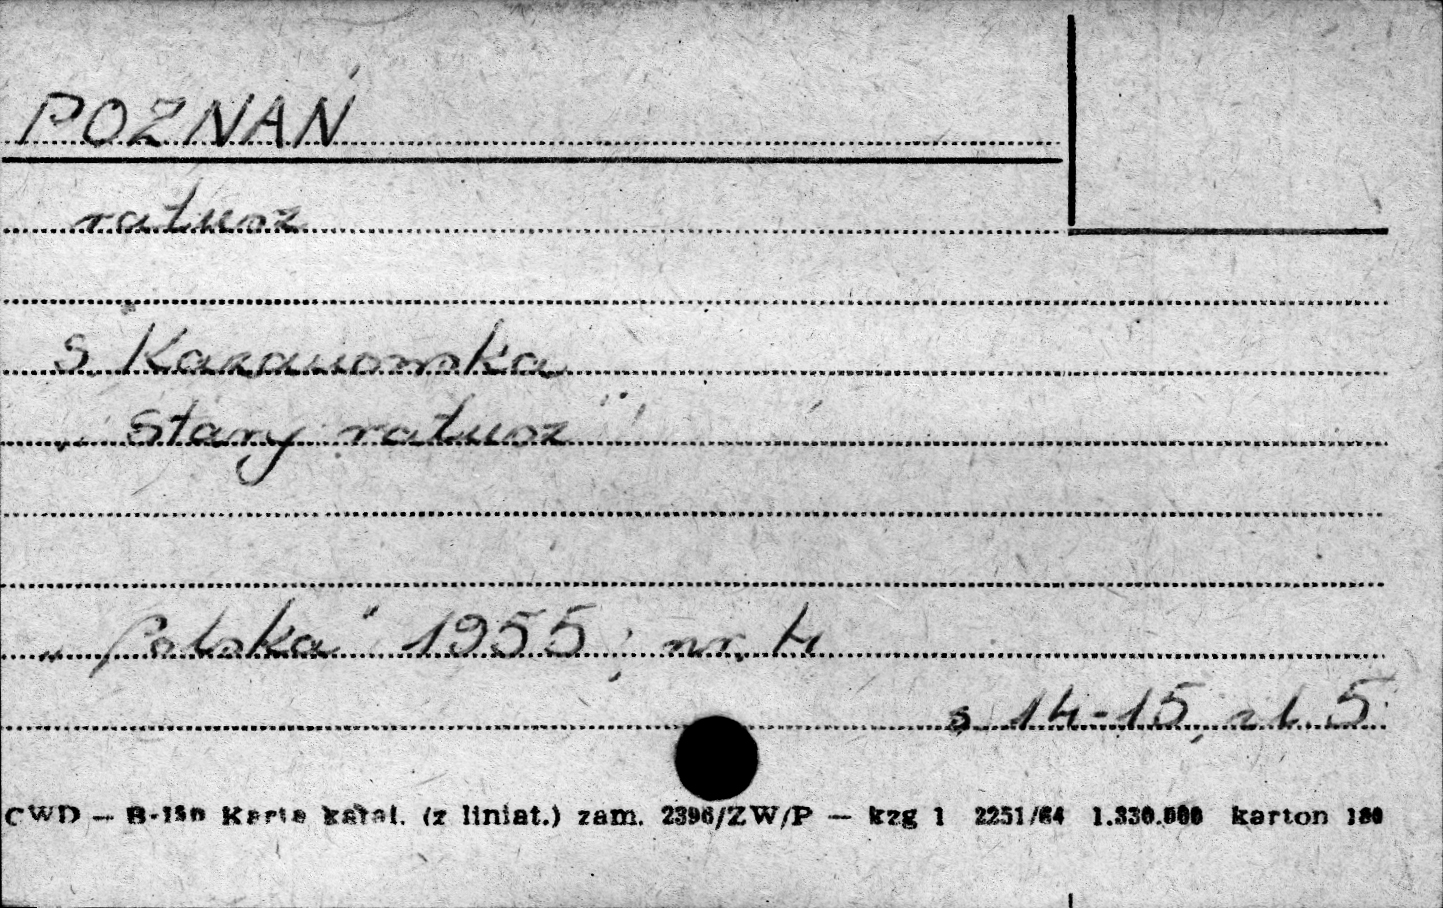 POZNAŃ
ratusz
S. Kazanowska
„Stary ratusz"
„Polska" 1955, nr. 4
s. 14-15, il. 5
CWD — B-150 Karta katal. (z liniat.) zam. 2396/ZW/P — kzg 1 2251/64 1.330.000 karton 180